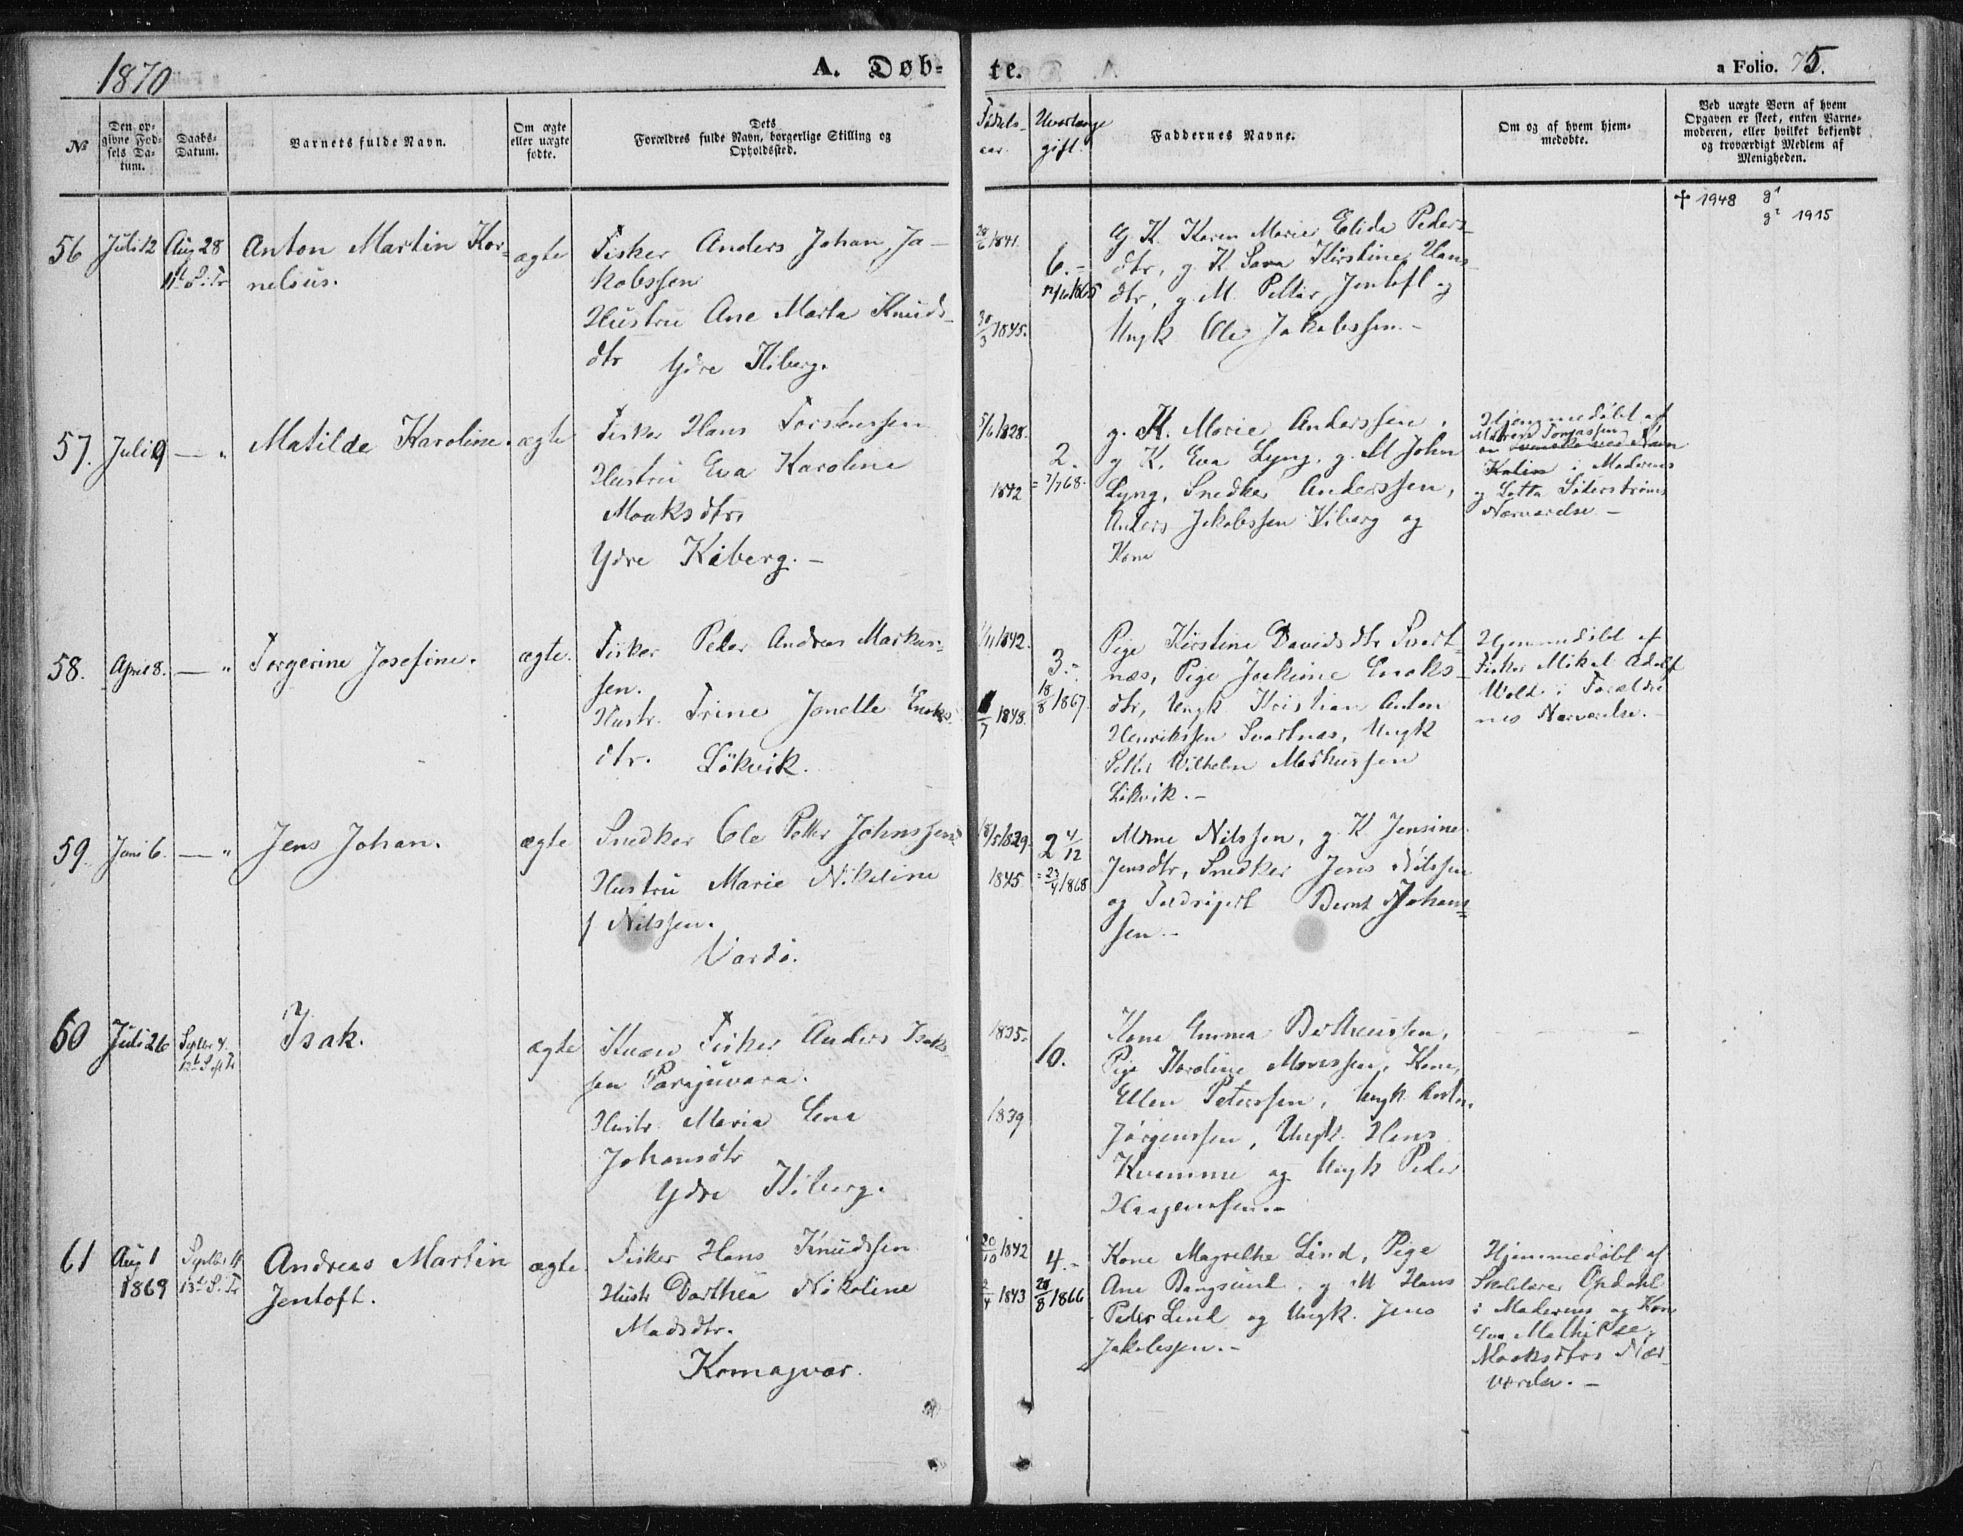 1870
A. Døb-
te.
a Folio. 75.
No
Den op-
givne Fød-
sels Da-
tum.
Daabs-
Datum.
Barnets fulde Navn.
Om ægte
eller uægte
fødte.
Dets
Forældres fulde Navn, borgerlige Stilling og
Opholdssted.
Fødsels-
aar.
gift.
Faddernes Navne.
Om og af hvem hjem-
medøbte.
Ved uægte Børn af hvem
Opgaven er skeet, enten Barne-
moderen, eller hvilket bekjendt
og troværdigt Medlem af
Menigheden.
56
Juli 12
Aug 28
Anton Martin Kor-
nelius.
ægte
Fisker Anders Johan Ja-
kobssen
Hustru Ane Marta Knuds-
dtr Ydre Kiberg.
1841.
30/3 1845.
6.
G. K. Karen Marie Elida Peders-
dtr, g. K Sara Kirstine Hans-
dtr, g. M. Petter Jentoft og
Ungk. Ole Jakobssen.-
† 1948
1915
57.
Juli 9
— "
Matilde Karoline.
ægte
Fisker Hans Torstenssen
Hustru Eva Karoline
Moaksdtr.
Ydre Kiberg. -
5/6 1828.
1842
2.
= 7/7 68.
g. K. Marie Anderssen,
g K. Eva Lyng, g. M John
Lyng, Snedker Anderssen,
Anders Jakobssen Kiberg og
Kone
Hjemmedøbt af
i Moderens
og Lotta Söderströms
Nærværelse -
58.
April 8.
— "
Torgerine Josefine.
ægte.
Fisker Peder Andreas Markus-
sen.
Hustr. Trine Jonette Enoks-
dtr. Lökvik.
1842.
1848.
3.-
18/8 1867.
Pige Kirstine Davidsdtr Svart-
næs, Pige Joakime Enoks-
dtr, Ungk Kristian Anton
Henrikssen Svartnæs, Ungk
Petter Wilhelm Markussen
Lökvik.-
Hjemmedøbt af
Fisker Mikal Adolf
Wold i Forældre-
nes Nærværelse.-
59.
Juni 6.
— "
Jens Johan.
ægte
Snedker Ole Petter Johnssen
Hustru Marie Nikoline
f Nilssen.
Vardö.
18/5 1829.
1845
2 4/12
= 23/4 1868
Nilssen, g. K Jensine
Jensdtr, Snedker Jens Nilssen
og Bernt Johans-
sen.-
60
Juli 26
Septbr 4.
Isak.
ægte
Kvæn Fisker Anders Isak-
sen
Hustr. Maria Lena
Johansdtr
Ydre Kiberg.
1835.
1839
10.
Kone Emma
Pige Kone
Ellen Peterssen, Ungk
Jörgenssen, Ungk. Hans
Kvamme og Ungk Peder
Haagenssen.-
61
Aug 1
1869
Septbr 11
13d S. Tr
Andreas Martin
Jentoft.
ægte
Fisker Hans Knudssen
Hustr Dorthea Nikoline
Madsdtr.
Komagvær.
20/10 1842
1843
4.-
28/8 1866
Kone Magrethe Lind, Pige
Ane Bangsund, g M Hans
Peder Lind og Ungk. Jens
Jakobssen.-
Hjemmedøbt af
Skolelærer Opdahl
i Moderens og Kone
Eva Mathilde
Moaksdtrs Nær-
værelse. -